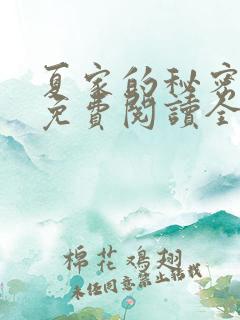 夏家的秘密
免費閱讀全
棉花鸡翅
未经同意禁止转载